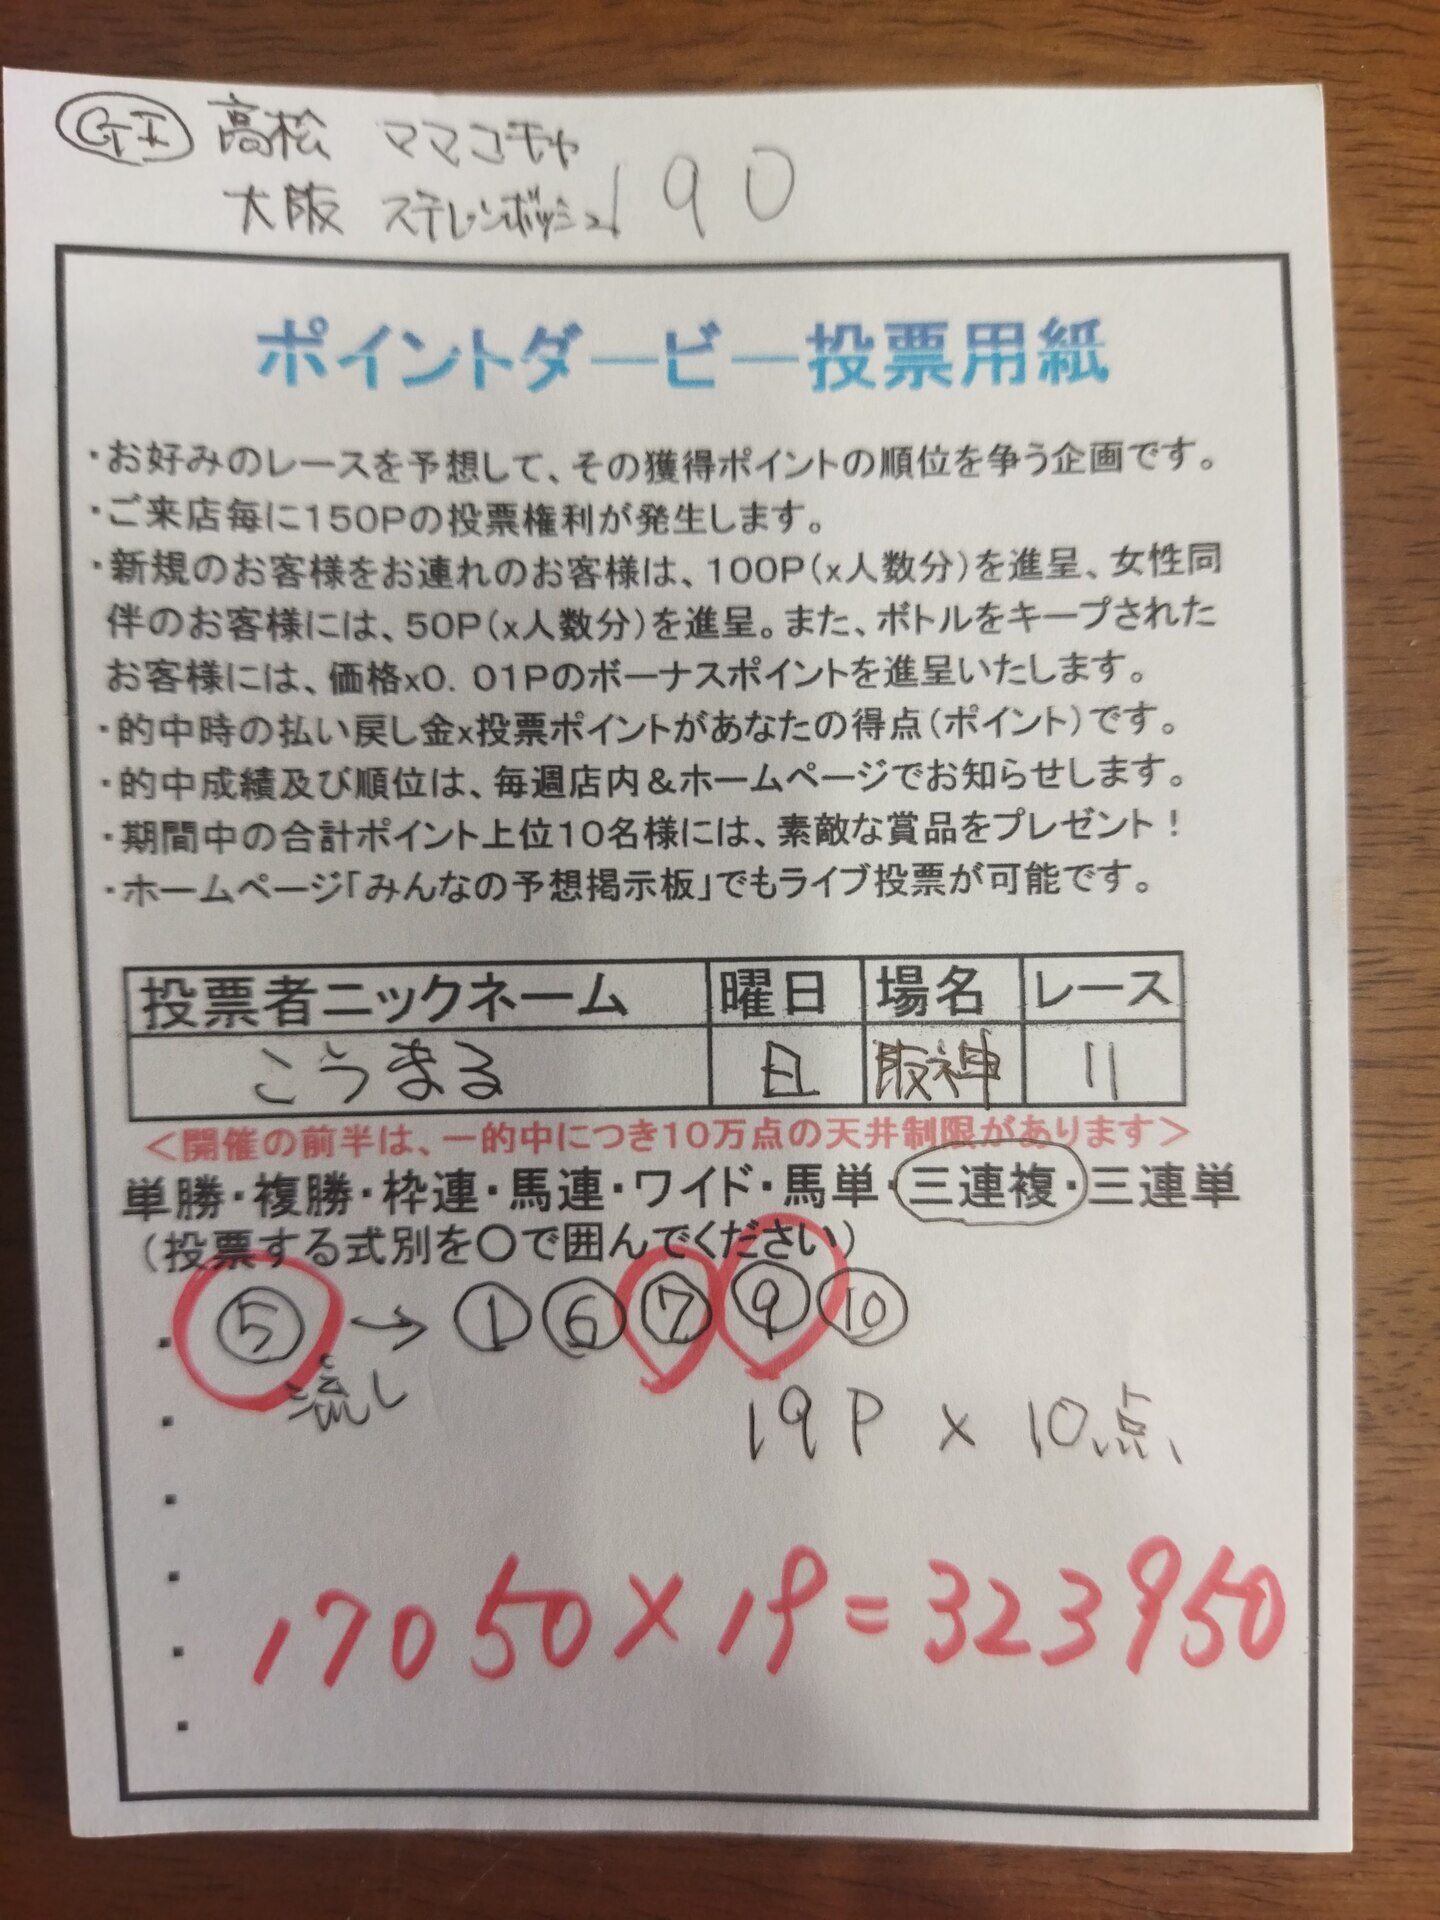 GI 高松 ママコチャ
大阪 ステレンボッシュ 190
ポイントダービー投票用紙
・お好みのレースを予想して、その獲得ポイントの順位を争う企画です。
・ご来店毎に150Pの投票権利が発生します。
・新規のお客様をお連れのお客様は、100P(x人数分)を進呈、女性同
伴のお客様には、50P(x人数分)を進呈。また、ボトルをキープされた
お客様には、価格x0.01Pのボーナスポイントを進呈いたします。
・的中時の払い戻し金x投票ポイントがあなたの得点(ポイント)です。
・的中成績及び順位は、毎週店内&ホームページでお知らせします。
・期間中の合計ポイント上位10名様には、素敵な賞品をプレゼント!
・ホームページ「みんなの予想掲示板」でもライブ投票が可能です。
投票者ニックネーム 曜日 場名 レース
こうまる 日 阪神 11
<開催の前半は、一的中につき10万点の天井制限があります>
単勝・複勝・枠連・馬連・ワイド・馬単・三連複・三連単
(投票する式別を○で囲んでください)
・⑤→①⑥⑦⑨⑩
・流し 19P x 10点
・
・
・17050×19=323950
・